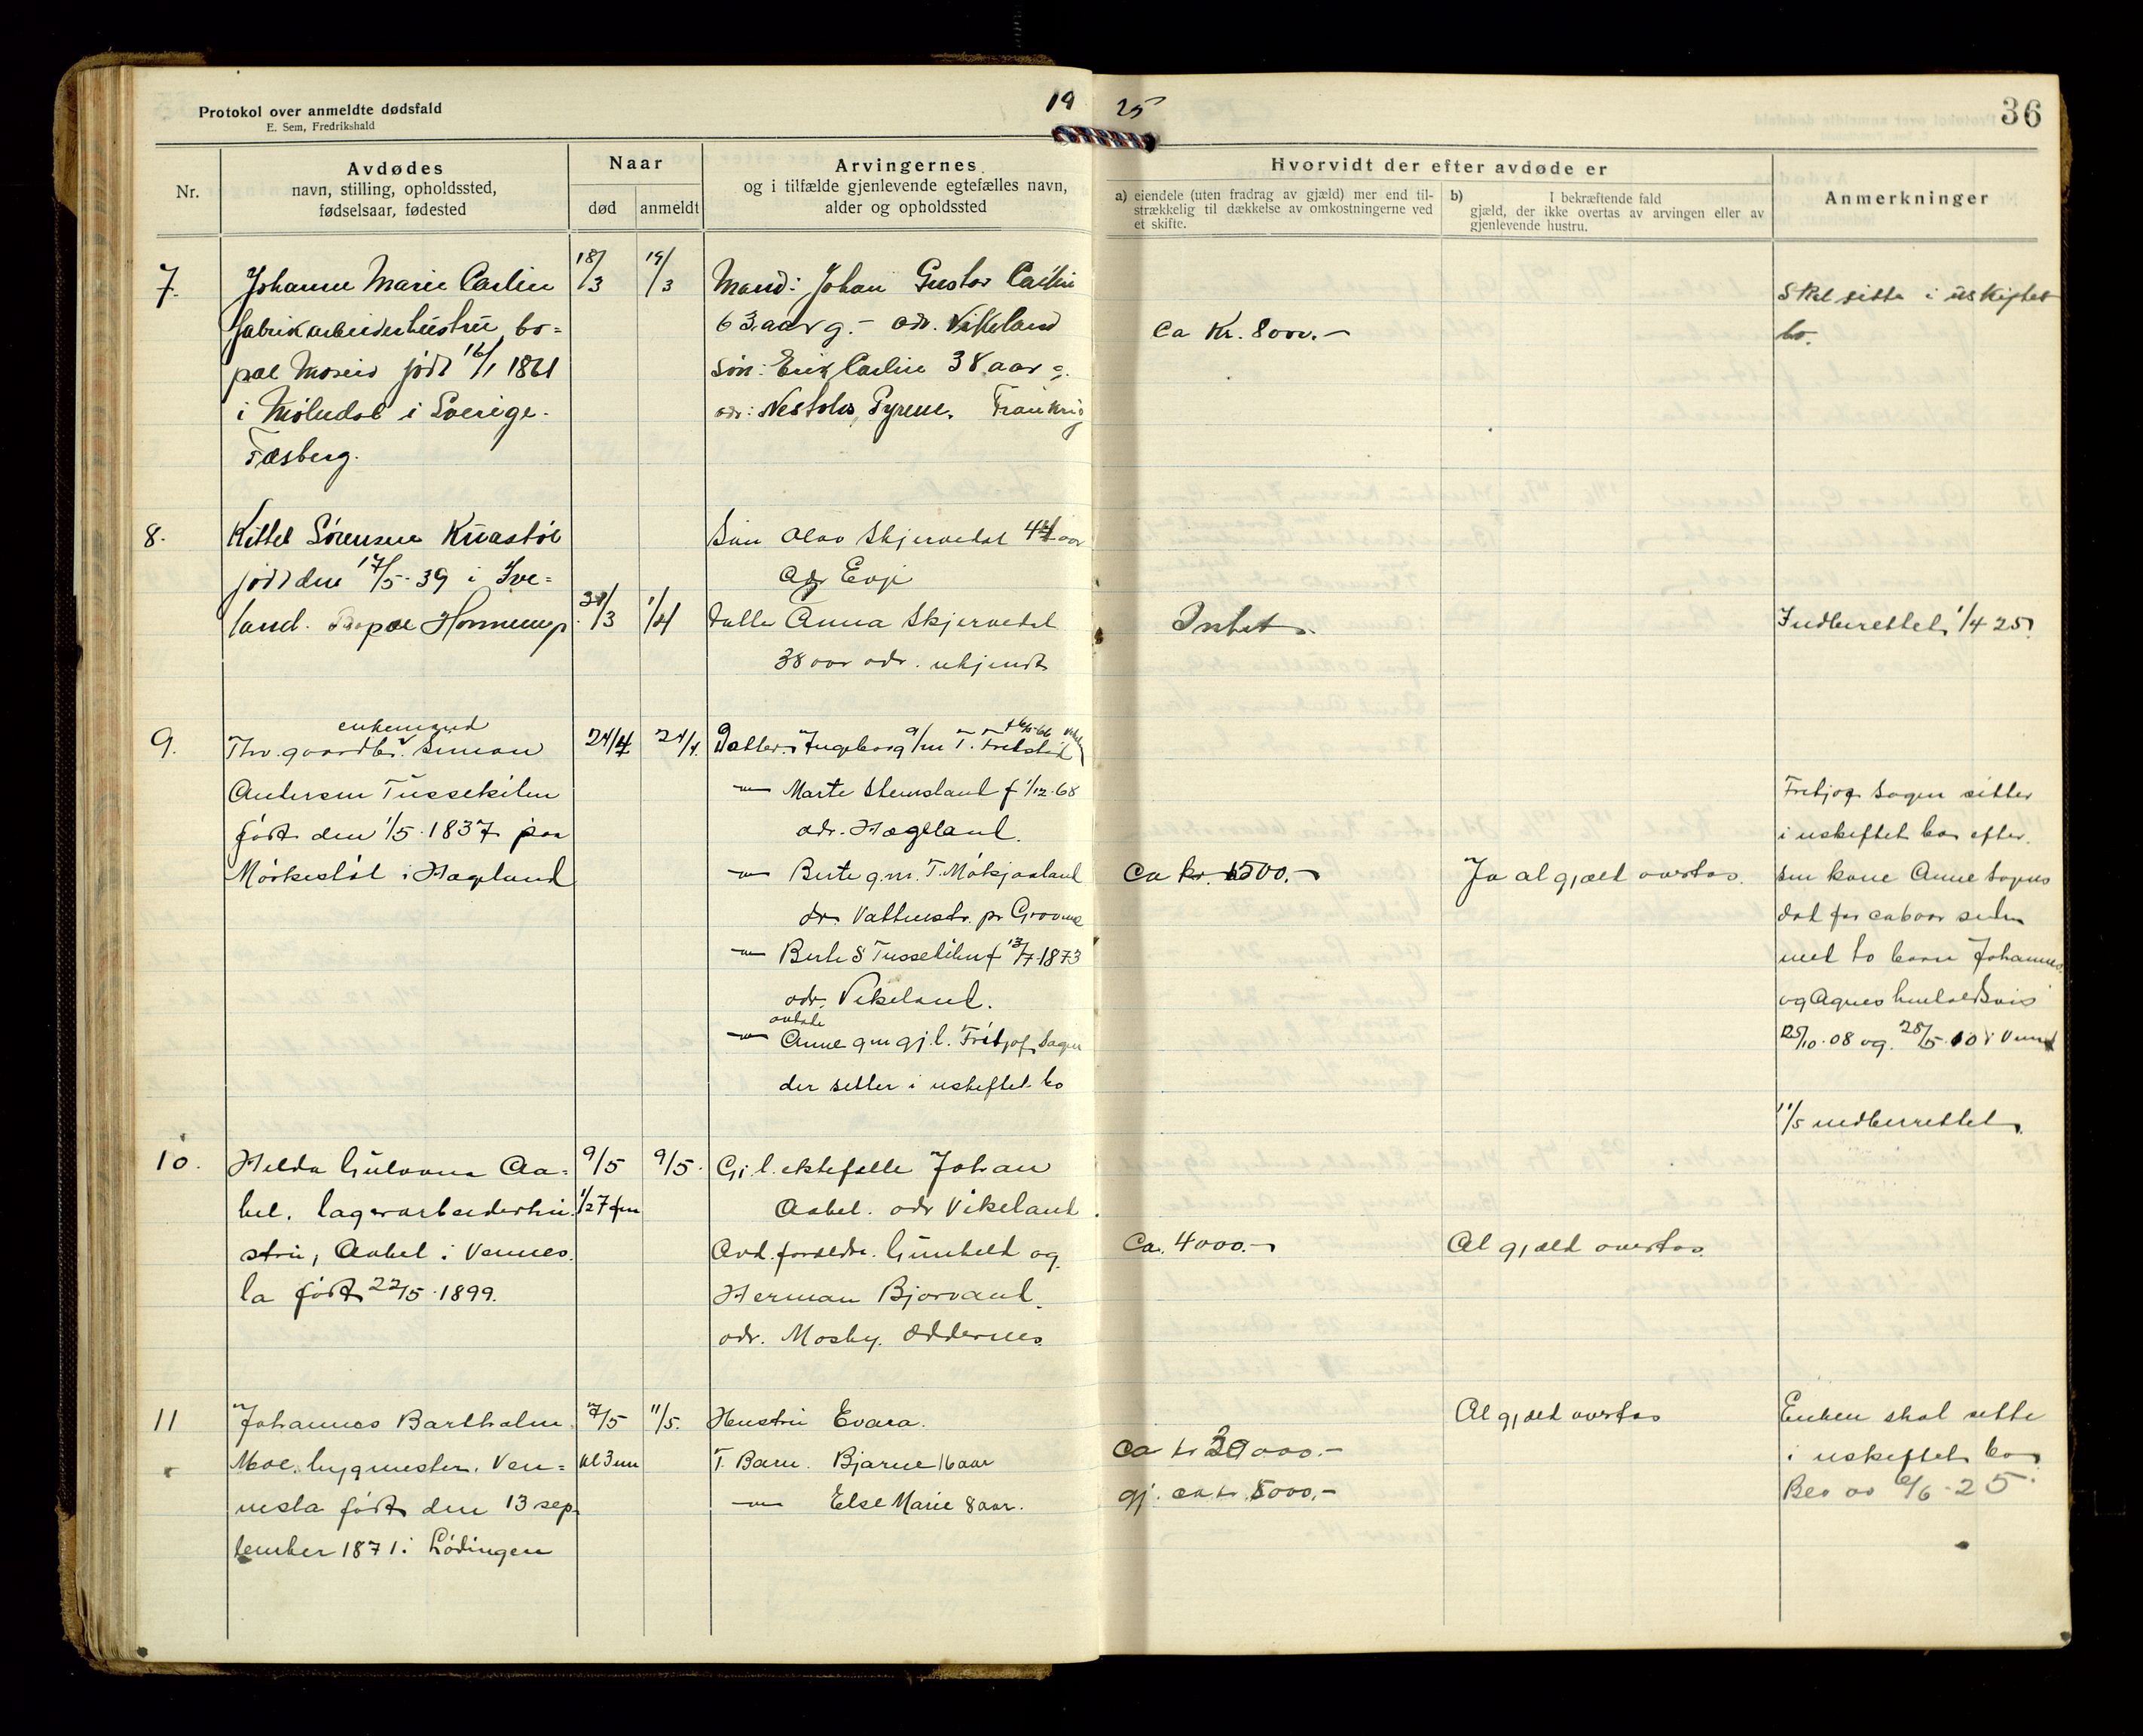 Protokol over anmeldte dødsfald
E. Sem, Fredrikshald
19 25
36
Nr.
Avdødes
navn, stilling, opholdssted,
fødselsaar, fødested
Naar
død
anmeldt
Arvingernes
og i tilfælde gjenlevende egtefælles navn,
alder og opholdssted
Hvorvidt der efter avdøde er
a) eiendele (uten fradrag av gjæld) mer end til-
strækkelig til dækkelse av omkostningerne ved
et skifte.
b) I bekræftende fald
gjæld, der ikke overtas av arvingen eller av
gjenlevende hustru.
Anmerkninger
7.
Johanne Marie Carlin
fabrikarbeiderhustru, bo-
pæl Moseid født 16/1 1861
i Mølndal i Sverige.
Fæsberg.
18/3
19/3
Mand: Johan Gustav Carlin
63 aar g. - adr. Vikeland
Søn: Erik Carlin 38 aar g.
adr: Nestolas, Pyrene, Frankrig
Ca Kr. 8000.-
Skal sitte i uskiftet
bo.
8.
Kittel Sørensen Kvastøl
født den 17/5-39 i Ive-
land. Bopæl Hommen
/3
1/4
Søn Olav Skjervedal 44 aar
Adr Evje
Datte Anna Skjervedal
38 aar adr. ukjendt
Intet.
Indberettet 1/4 25.
9.
enkemand
Fhv. gaardbr. Simon
Andersen Tussekilen
født den 1/5 1837 paa
Mørkestøl i Hægeland
24/4
24/4.
Datter: Ingeborg g/m T.
-"- Marte Stemsland f 1/12 68
adr. Hægeland.
-"- Berte g.m. T. Måkjaaland
adr. Vatnestr. pr Groovane
-"- Berte S Tussekilen f 13/7 1873
adr. Vikeland.
avdøde
-"- Anne gm gj.l. Fritjof Sagen
der sitter i uskiftet bo
Ca kr. 1500.-
Ja al gjæld overtas.
Fritjof Sagen sitter
i uskiftet bo efter
sin kone Anne Sagen
død for ca 6 aar siden
med to barn Johannes
og Agnes henholdsvis
25/10-08 og 28/5 10 i Vennesl
10.
Hilda Gulovna Aa-
bel. lagerarbeiderhu-
stru, Aabel i Vennes-
la født 22/5 1899.
9/5
1/2 7 fm
9/5.
Gj.l. ektefælle Johan
Aabel. adr Vikeland.
Avd. forældre. Gunhild og
Herman Bjorvand.
adr. Mosby. Oddernes.
Ca. 4000.-
Al gjæld overtas.
11/5 indberettet.
11
Johannes Bartholm.
Moe. bygmester. Ven-
nesla født den 13 sep-
tember 1871 i Lødingen
7/5
kl 3 em
11/5.
Hustru Evara.
T. Barn. Bjarne 16 aar
-"- Else Marie 8 aar.
gj. ca kr. 5000.-
Al gjæld overtas
Enken skal sitte
i uskiftet bo